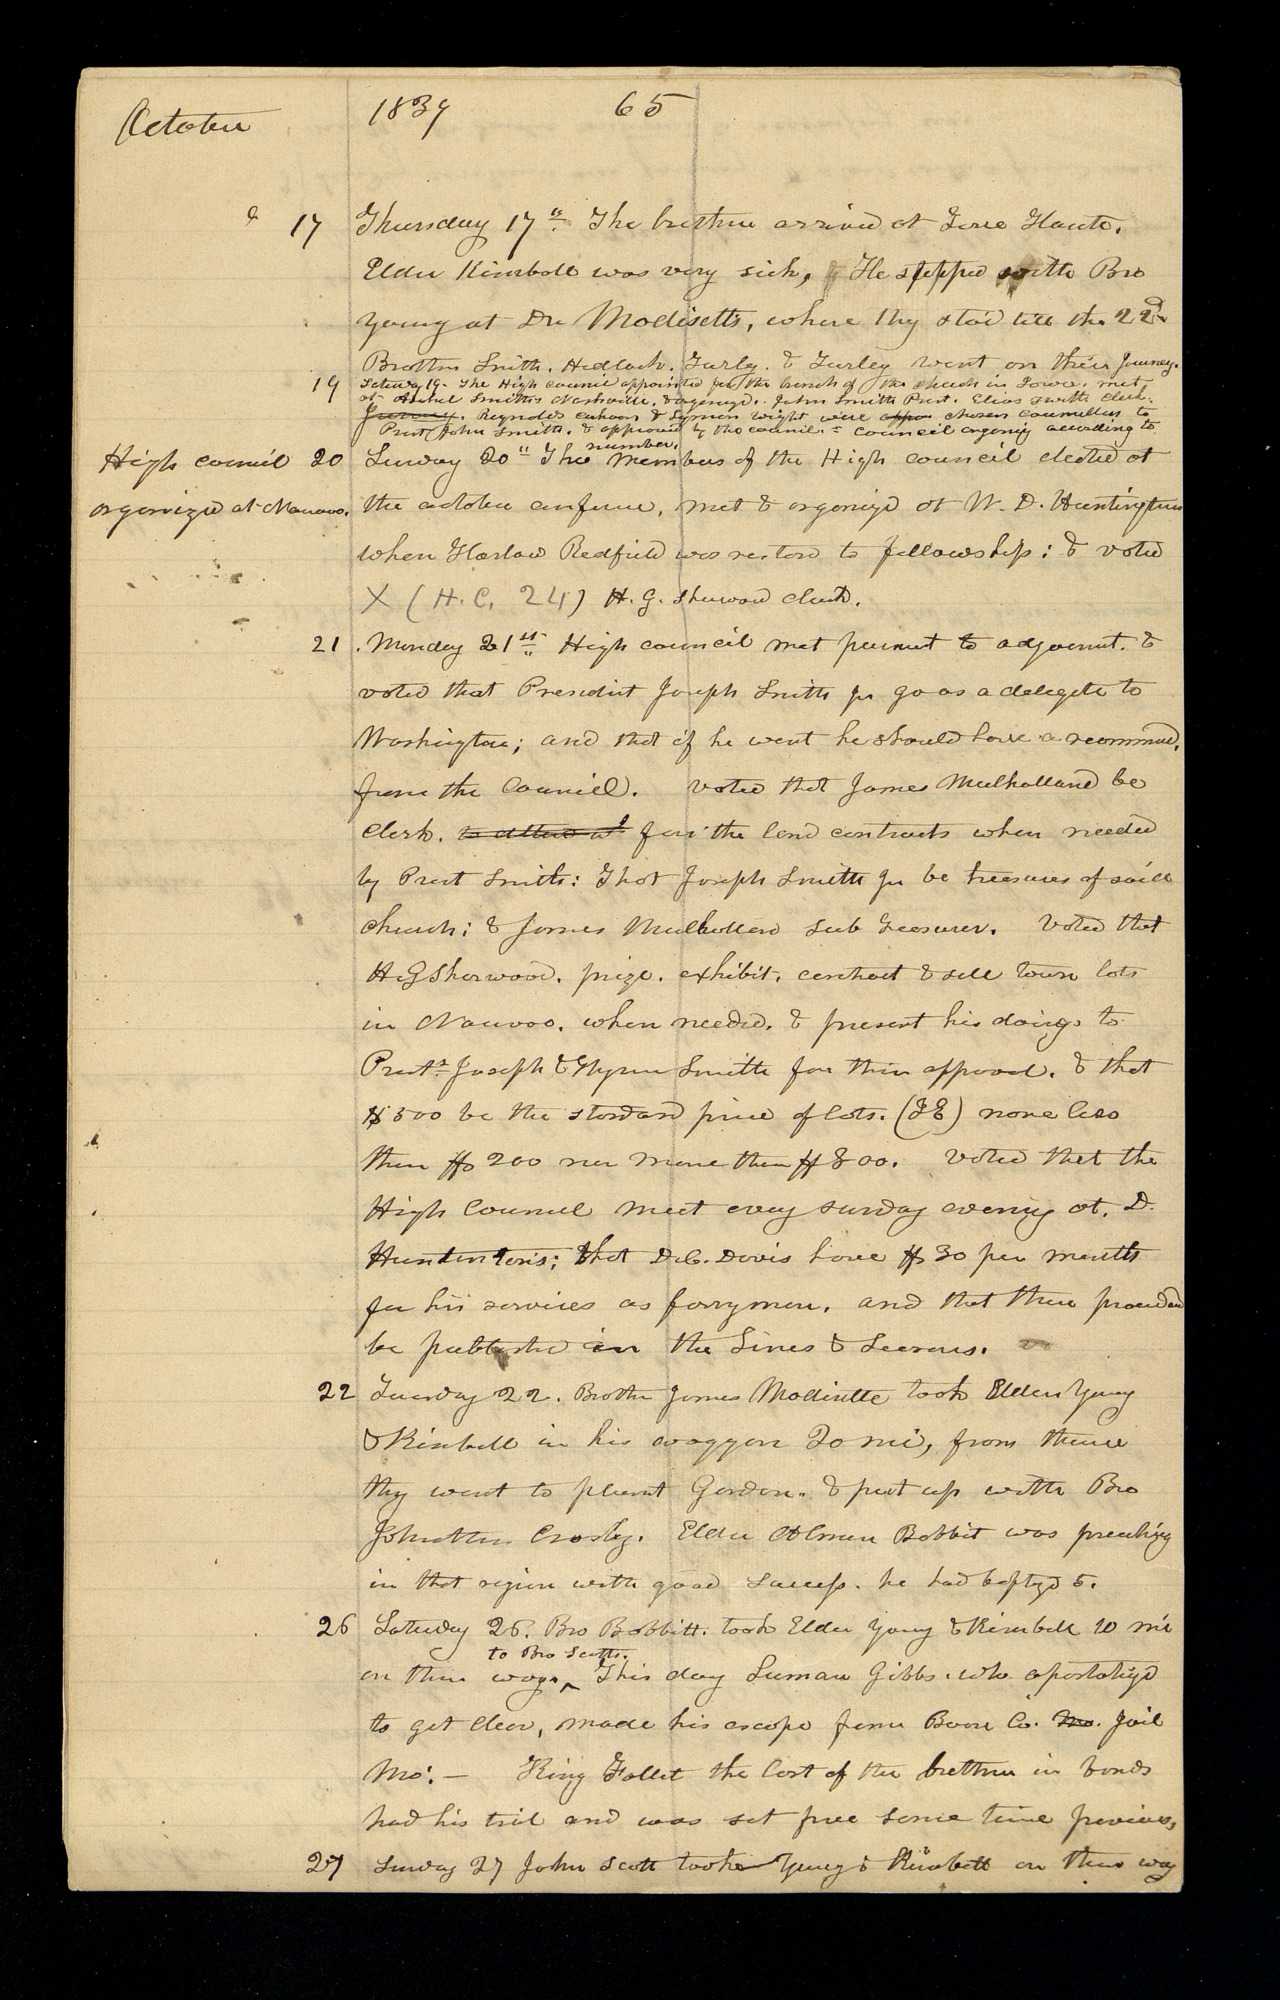 October 1839 65
& 17 Thursday 17th The brethren arrived at Terre Haute.
Elder Kimball was very sick, He stopped with Bro
Young at Dr Modisetts, where they staid till the 22d
Brothers Smith. Hedlock. Turley went on their Journey.
19 Saturday 19. The High council appointed for the branch of the church in Iowa. met
at Asahel Smiths Nashville, & organized. John Smith Prest. Elias Smith clerk.
Reynolds Cahoon & Lyman Wight were appoi chosen councellors to
Prest John Smith. & approved by the council. = council organiz according to
number.
High council 20 Sunday 20th The members of the High council elected at
organized at Nauvoo. the october conference, met & organized at W. D. Huntingtons
when Harlow Redfield was restord to fellowship: & voted
X (H. C. 24) H. G. Sherwood clerk.
21 . Monday 21st High council met persuant to adjournmt. &
voted that President Joseph Smith Jr go as a delegate to
Washington; and that if he went he should have a recommend.
from the Council. voted that James Mulholland be
Clerk. to attend at for the land contracts when needed
by Prest Smith: That Joseph Smith Jr be treasurer of said
church: & James Mulholland sub treasurer. Voted that
H G Sherwood. prize. exhibit. contract & sell town lots
in Nauvoo. when needed. & present his doings to
Prests Joseph & Hyrum Smith for their approval. & that
$500 be the standard price of lots. (I E) none less
then $200 nor more then $800. Voted that the
High Council meet every sunday evening at. D.
Huntintons; that D. C. Davis have $30 per month
for his services as ferryman. and that these proceedins
be published in the Times & Seasons.
22 Tuesday 22. Brother James Modisette took Elders Young
& Kimball in his waggon 20 mi, from thence
they went to plesant Garden. & put up with Bro
Johnathan Crosby. Elder Almon Babbit was preaching
in that region with good success. he had baptizd 5.
26 Saturday 26. Bro Babbitt. took Elder Young & Kimball 10 mi
to Bro Scotts.
on their way ^ This day Luman Gibbs. who apostatizd
to get clear, made his escape from Boon Co. Mo. Jail
Mo: — King Follet the last of the brethren in bonds
had his trial and was set free some time previous,
27 Sunday 27 John Scott took Young & Kimball on their way